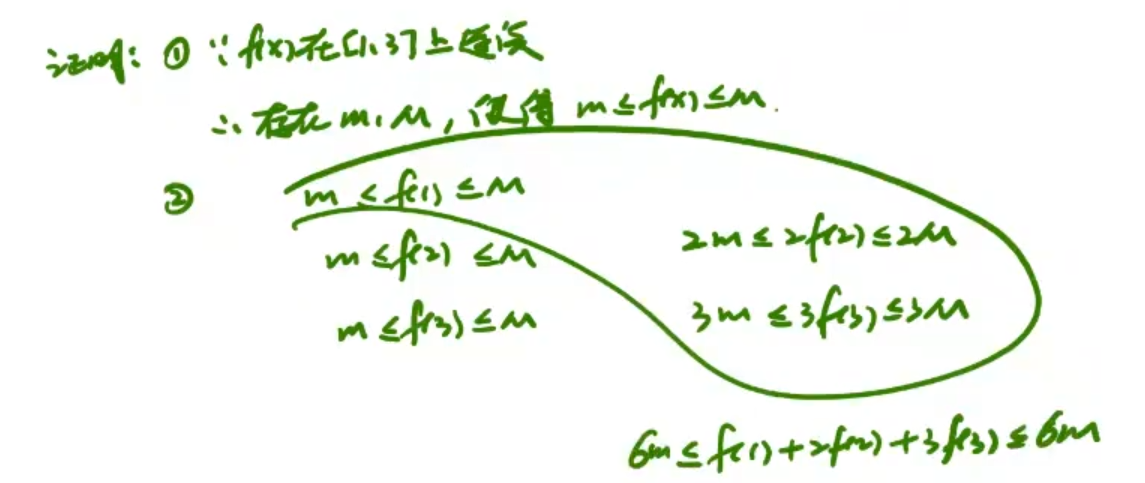 证明: ① ∵ f(x)在[1,3]上连续
∴ 存在 m, M, 使得 m ≤ f(x) ≤ M.
② m ≤ f(1) ≤ M
m ≤ f(2) ≤ M 2m ≤ 2f(2) ≤ 2M
m ≤ f(3) ≤ M 3m ≤ 3f(3) ≤ 3M
6m ≤ f(1)+2f(2)+3f(3) ≤ 6M